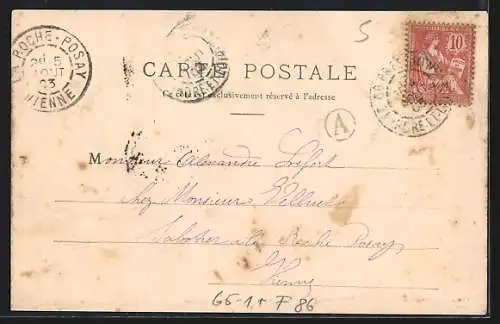 LA ROCHE-POSAY
5
AOUT
03
VIENNE
5
10
CARTE POSTALE
Ce côté est exclusivement réservé à l'adresse
A
Monsieur Alexandre Lefort
chez Monsieur Villeret
Sabotier à la Roche Posay
Vienne
66-11 F 86